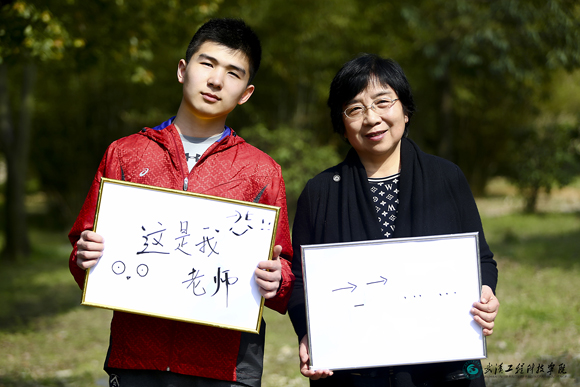 这是我!!
老师
武汉工程科技学院